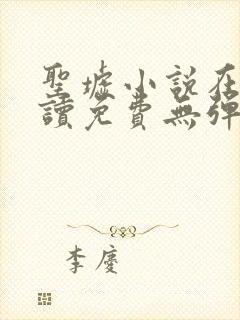 聖墟小說在
讀免費無彈
李慶